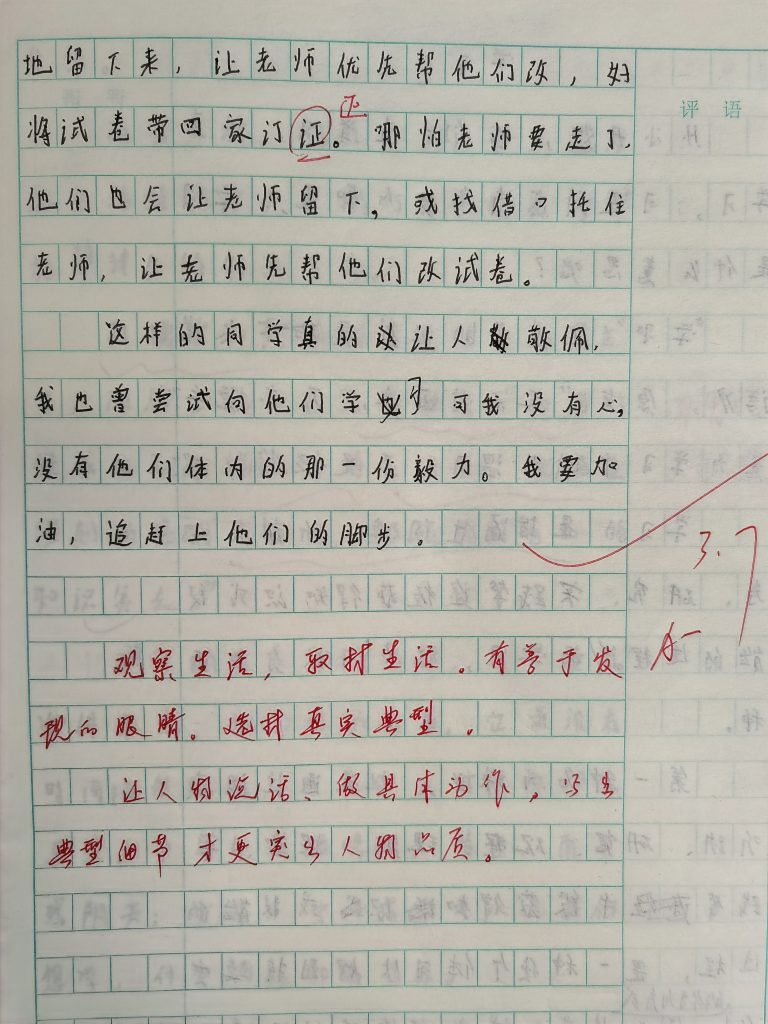 地留下来，让老师优先帮他们改，好
评语
正
将试卷带回家订证。哪怕老师要走了，
他们也会让老师留下，或找借口托住
老师，让老师先帮他们改试卷。
这样的同学真的让人敬佩，
我也曾尝试向他们学习，可我没有心，
没有他们体内的那一份毅力。我要加
油，追赶上他们的脚步。
3.7
A-
观察生活，取材生活。有善于发
现的眼睛。选材真实典型。
让人物说话、做具体动作，写出
典型细节才更突出人物品质。